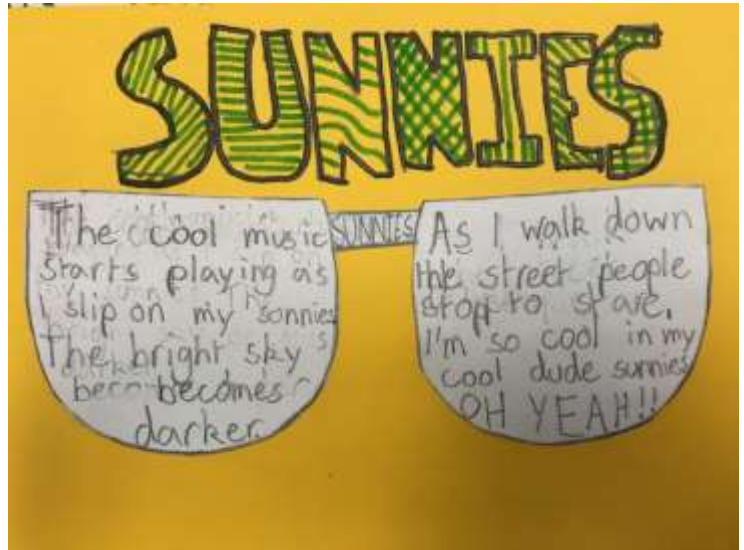 SUNNIES
The cool music
starts playing as
I slip on my sonnies
The bright sky
beco becomes
darker.
SUNNIES
As I walk down
the street people
stop to stare.
I'm so cool in my
cool dude sunnies
OH YEAH!!